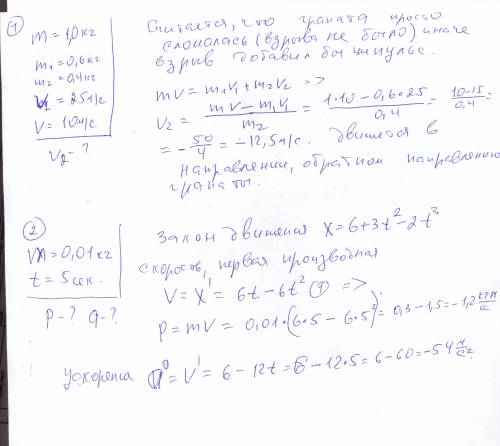 ①
m = 1,0 кг
m₁ = 0,6 кг
m₂ = 0,4 кг
V₁ = 25 м/с
V = 10 м/с
V₂ - ?
Считается, что граната просто
сломалась (взрыва не было) иначе
взрыв добавил бы импульс.
mV = m₁V₁ + m₂V₂ =>
V₂ = (mV - m₁V₁)/m₂ = (1·10 - 0,6·25)/0,4 = (10-15)/0,4 =
= -50/4 = -12,5 м/с. движется в
направлении, обратном направлению
гранаты.
②
m = 0,01 кг
t = 5 сек.
p - ? a - ?
Закон движения x = 6 + 3t² - 2t³
скорость, первая производная
V = x' = 6t - 6t² =>
p = mV = 0,01·(6·5 - 6·5²) = 0,3 - 1,5 = -1,2 кгм/с
ускорение = V' = 6 - 12t = 6 - 12·5 = 6 - 60 = -54 м/с²